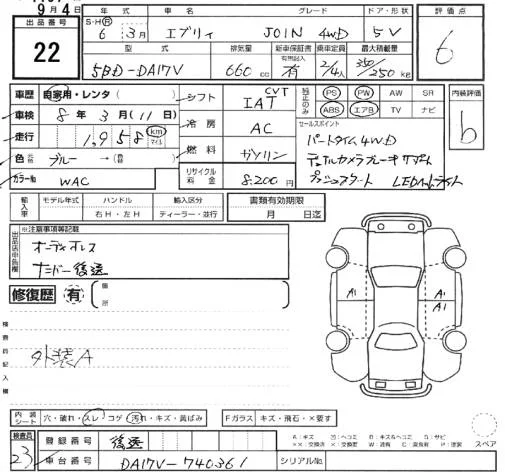 9月4日
出品番号
22
年式 車名 グレード ドア・形状
S・H Ⓡ
6年 3月 エブリィ JOIN 4WD 5V
型式 排気量 新車保証書 乗車定員 最大積載量
有無記入
5BD-DA17V 660cc 有 2/4人 350/250kg
評価点
6
車歴 自家用・レンタ( )
車検 8年 3月(11)日
走行 1,958 km マイル
色 元色 ブルー→(色替 )
カラーNo WAC
シフト CVT IAT
冷房 AC
燃料 ガソリン
リサイクル料金 8,200円
純正のみ
PS PW AW SR
ABS エアB TV ナビ
内装評価
b
セールスポイント
パートタイム4WD
デュアルカメラブレーキサポート
プッシュスタート LEDヘッドライト
輸入車 モデル年式 ハンドル 輸入区分
右H・左H ディーラー・並行
書類有効期限
月 日迄
出品店申告欄
※注意事項等記載
オーディオレス
ナンバー後送
修復歴 有 箇所
検査員記入欄
外装A
A1
A1
A1
内装シート 穴・破れ・スレ・コゲ 汚れ・キズ・黄ばみ
Fガラス キズ・飛石・×要す
検査員
23
登録番号 後送
車台番号 DA17V-740361
シリアルNo.
スペア